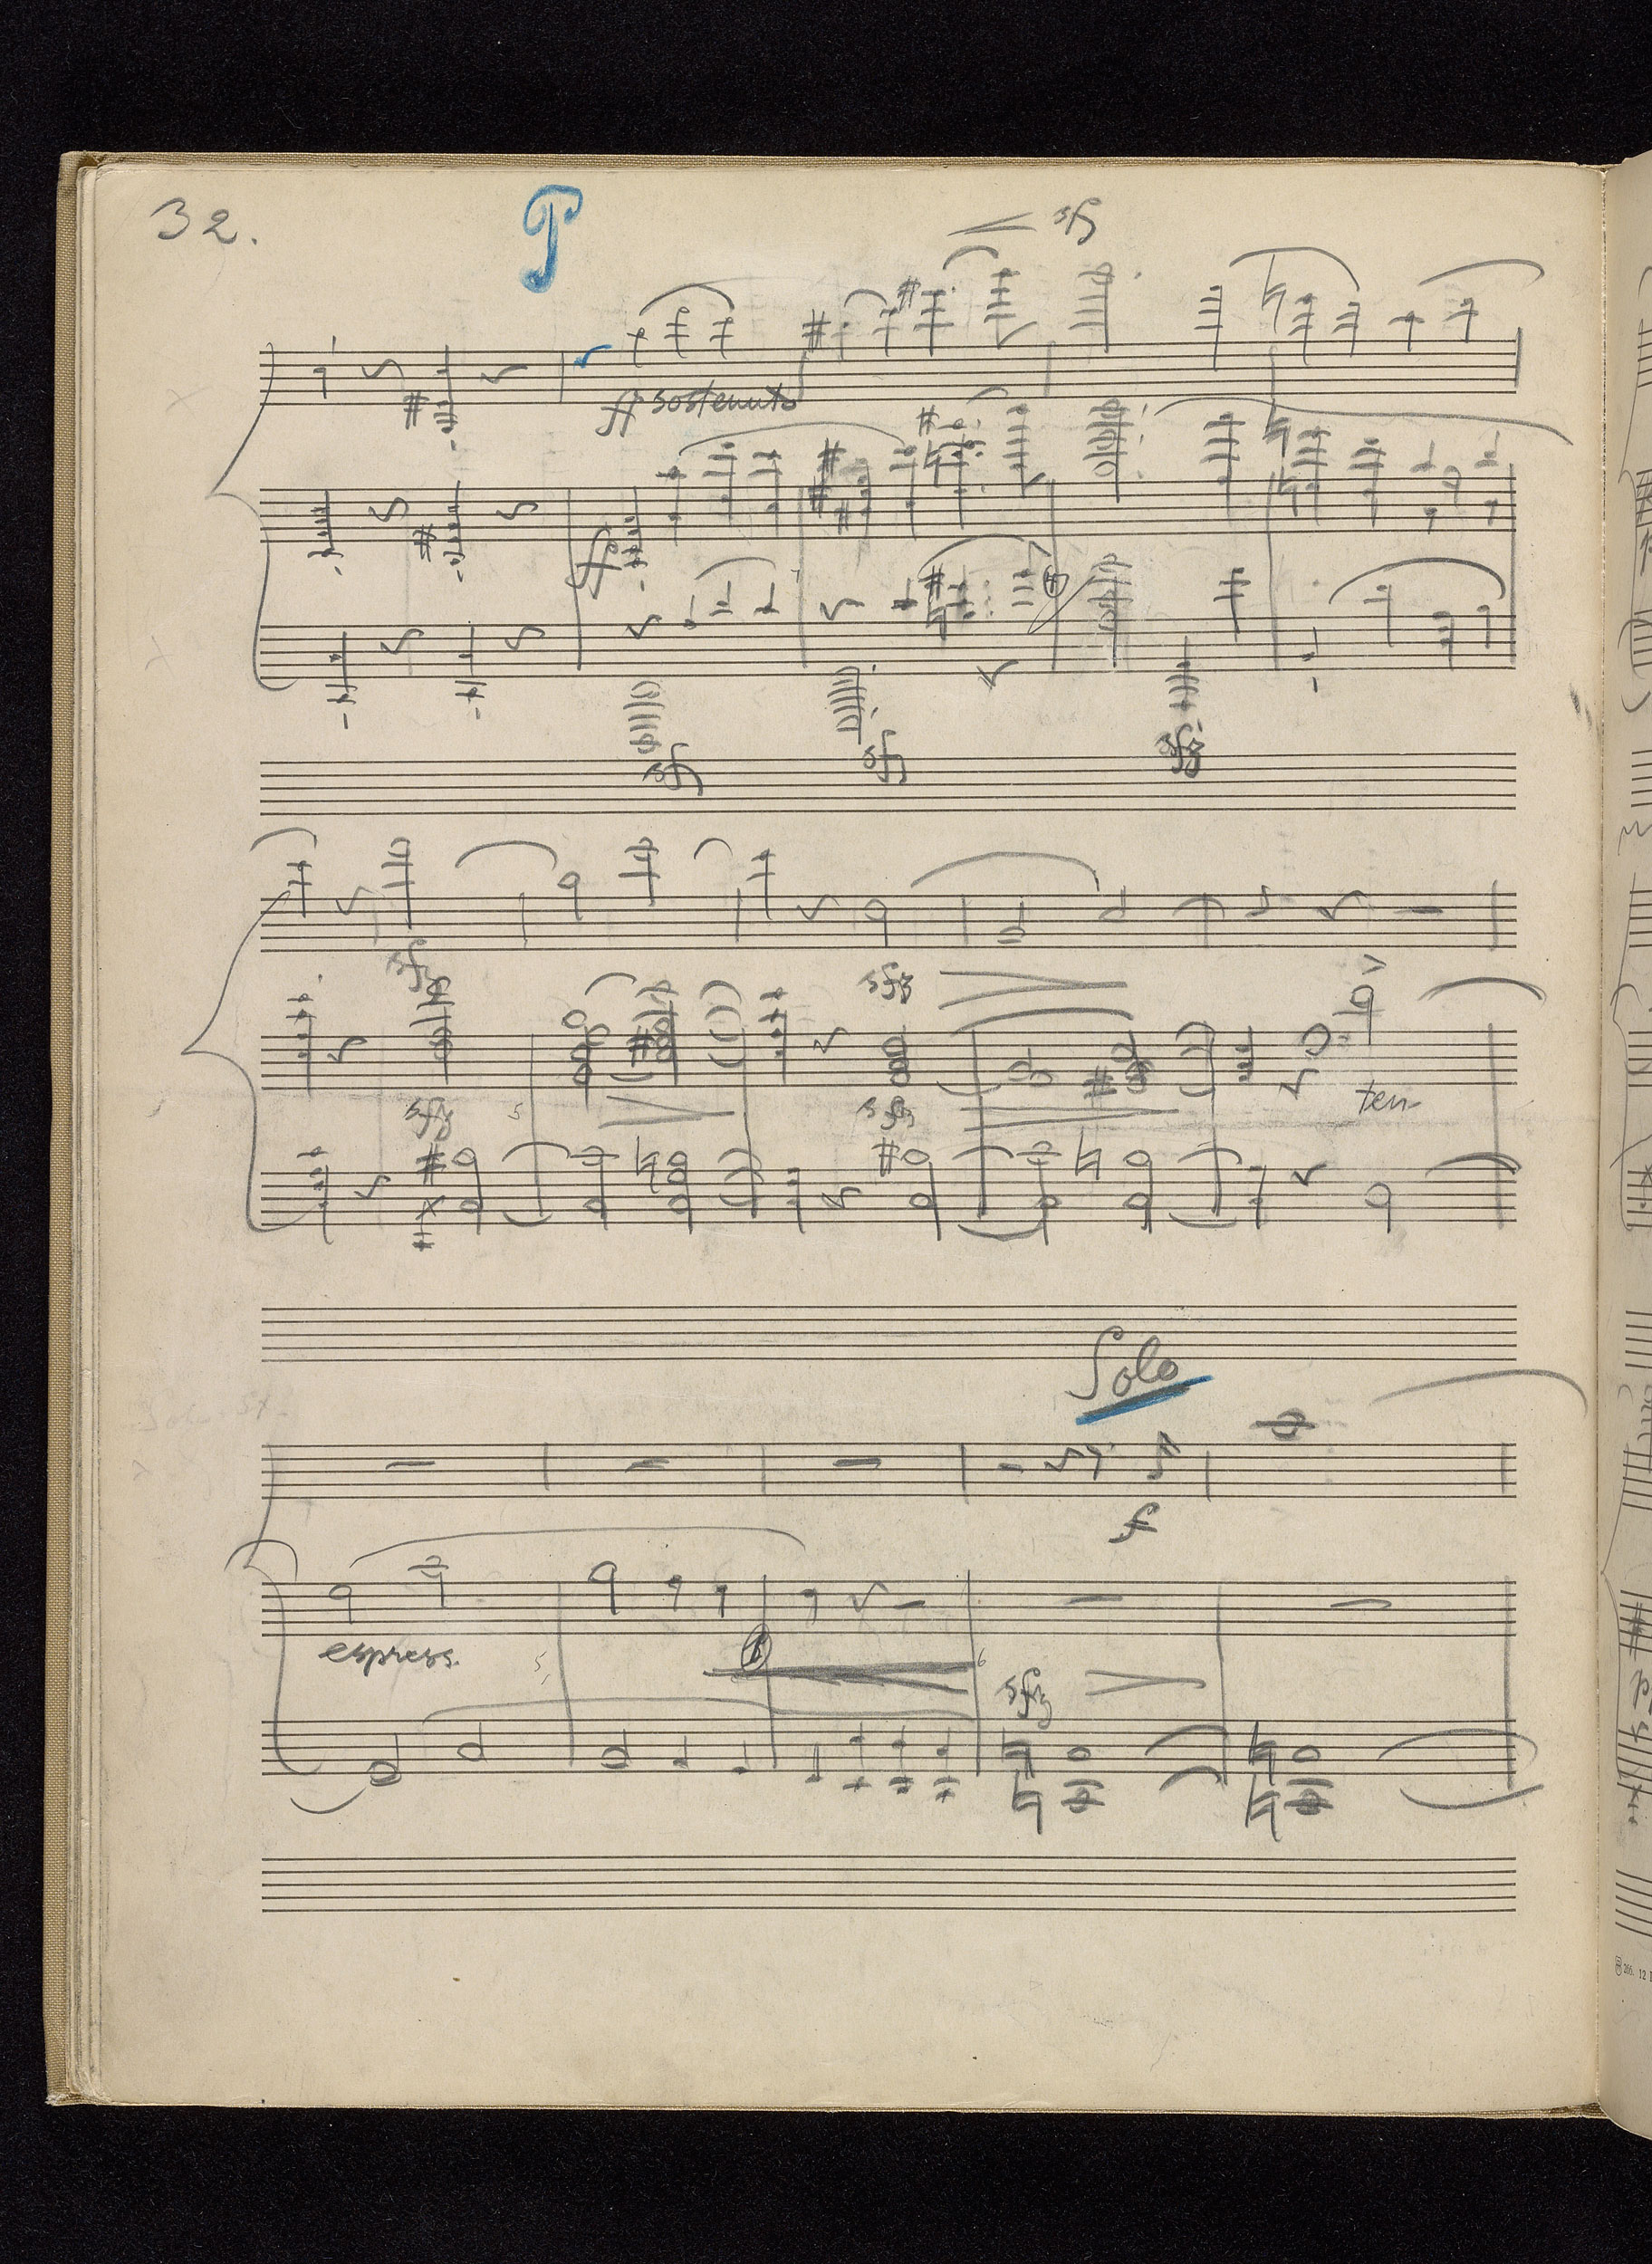 32.
P
sfz
ff sostenuto
ff
sfz
sfz
sfz
sfz
sfz
sfz
sfz
5
ten.
Solo
f
espress.
5
6
sfz